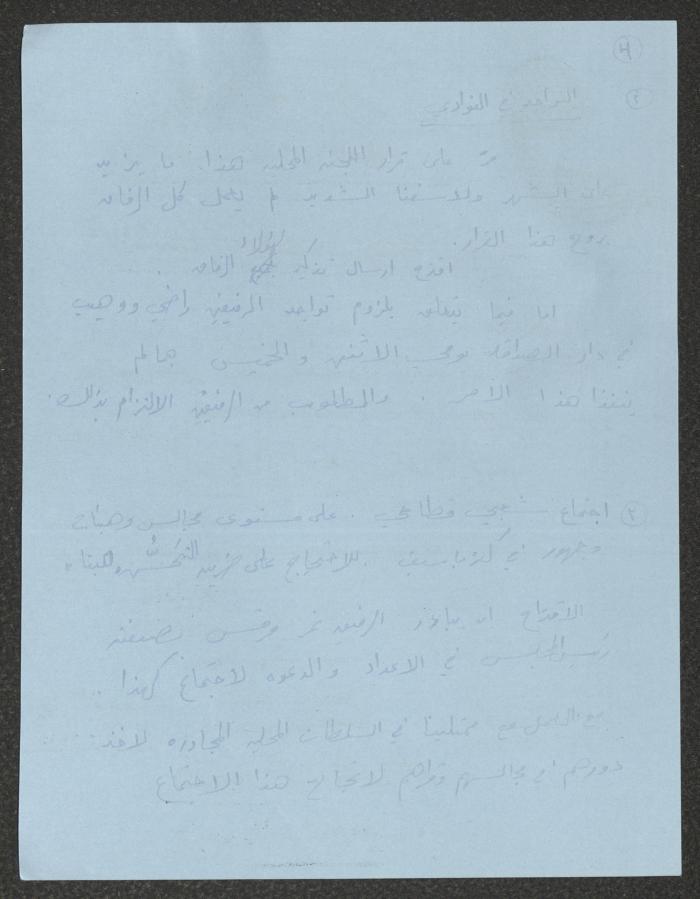 ٤
٢ التواجد في النوادي
مرّ على قرار اللجنه المحليه هذا. ما يزيد
على الشهر ولاسفنا الشديد لم يعمل كل الرفاق
بروح هذا القرار.
اقترح ارسال تذكير لهؤلاء الرفاق
اما فيما يتعلق بلزوم تواجد الرفيقين راضي ووهيب
في دار الصداقه يومي الاثنين والخميس فهما لم
ينفذا هذا الأمر. والمطلوب من الرفيقين الالتزام بذلك.
٣ اجتماع شعبي قطاعي. على مستوى مجالس وهيئات
وجمهور في كفرياسيف. للاحتجاج على ضريبة التحسين والبناء
الاقتراح ان يبادر الرفيق نمر مرقس بصفته
رئيس المجلس في الاعداد والدعوه لاجتماع كهذا..
مع العمل مع ممثلينا في السلطات المحليه المجاوره لاخذ
دورهم في مجالسهم وقراهم لانجاح هذا الاجتماع